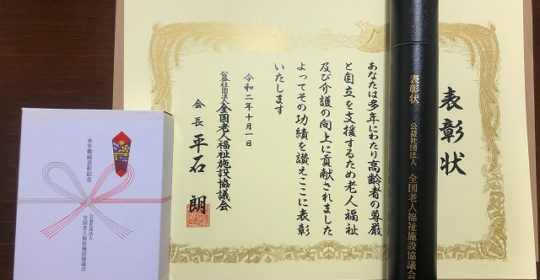 表彰状
あなたは多年にわたり高齢者の尊厳
と自立を支援するため老人福祉
及び介護の向上に貢献されました
よってその功績を讃えここに表彰
いたします
令和二年十月一日
公益社団法人全国老人福祉施設協議会
会長 平石 朗
表彰状 公益社団法人 全国老人福祉施設協議会
永年勤続表彰記念
公益社団法人
全国老人福祉施設協議会